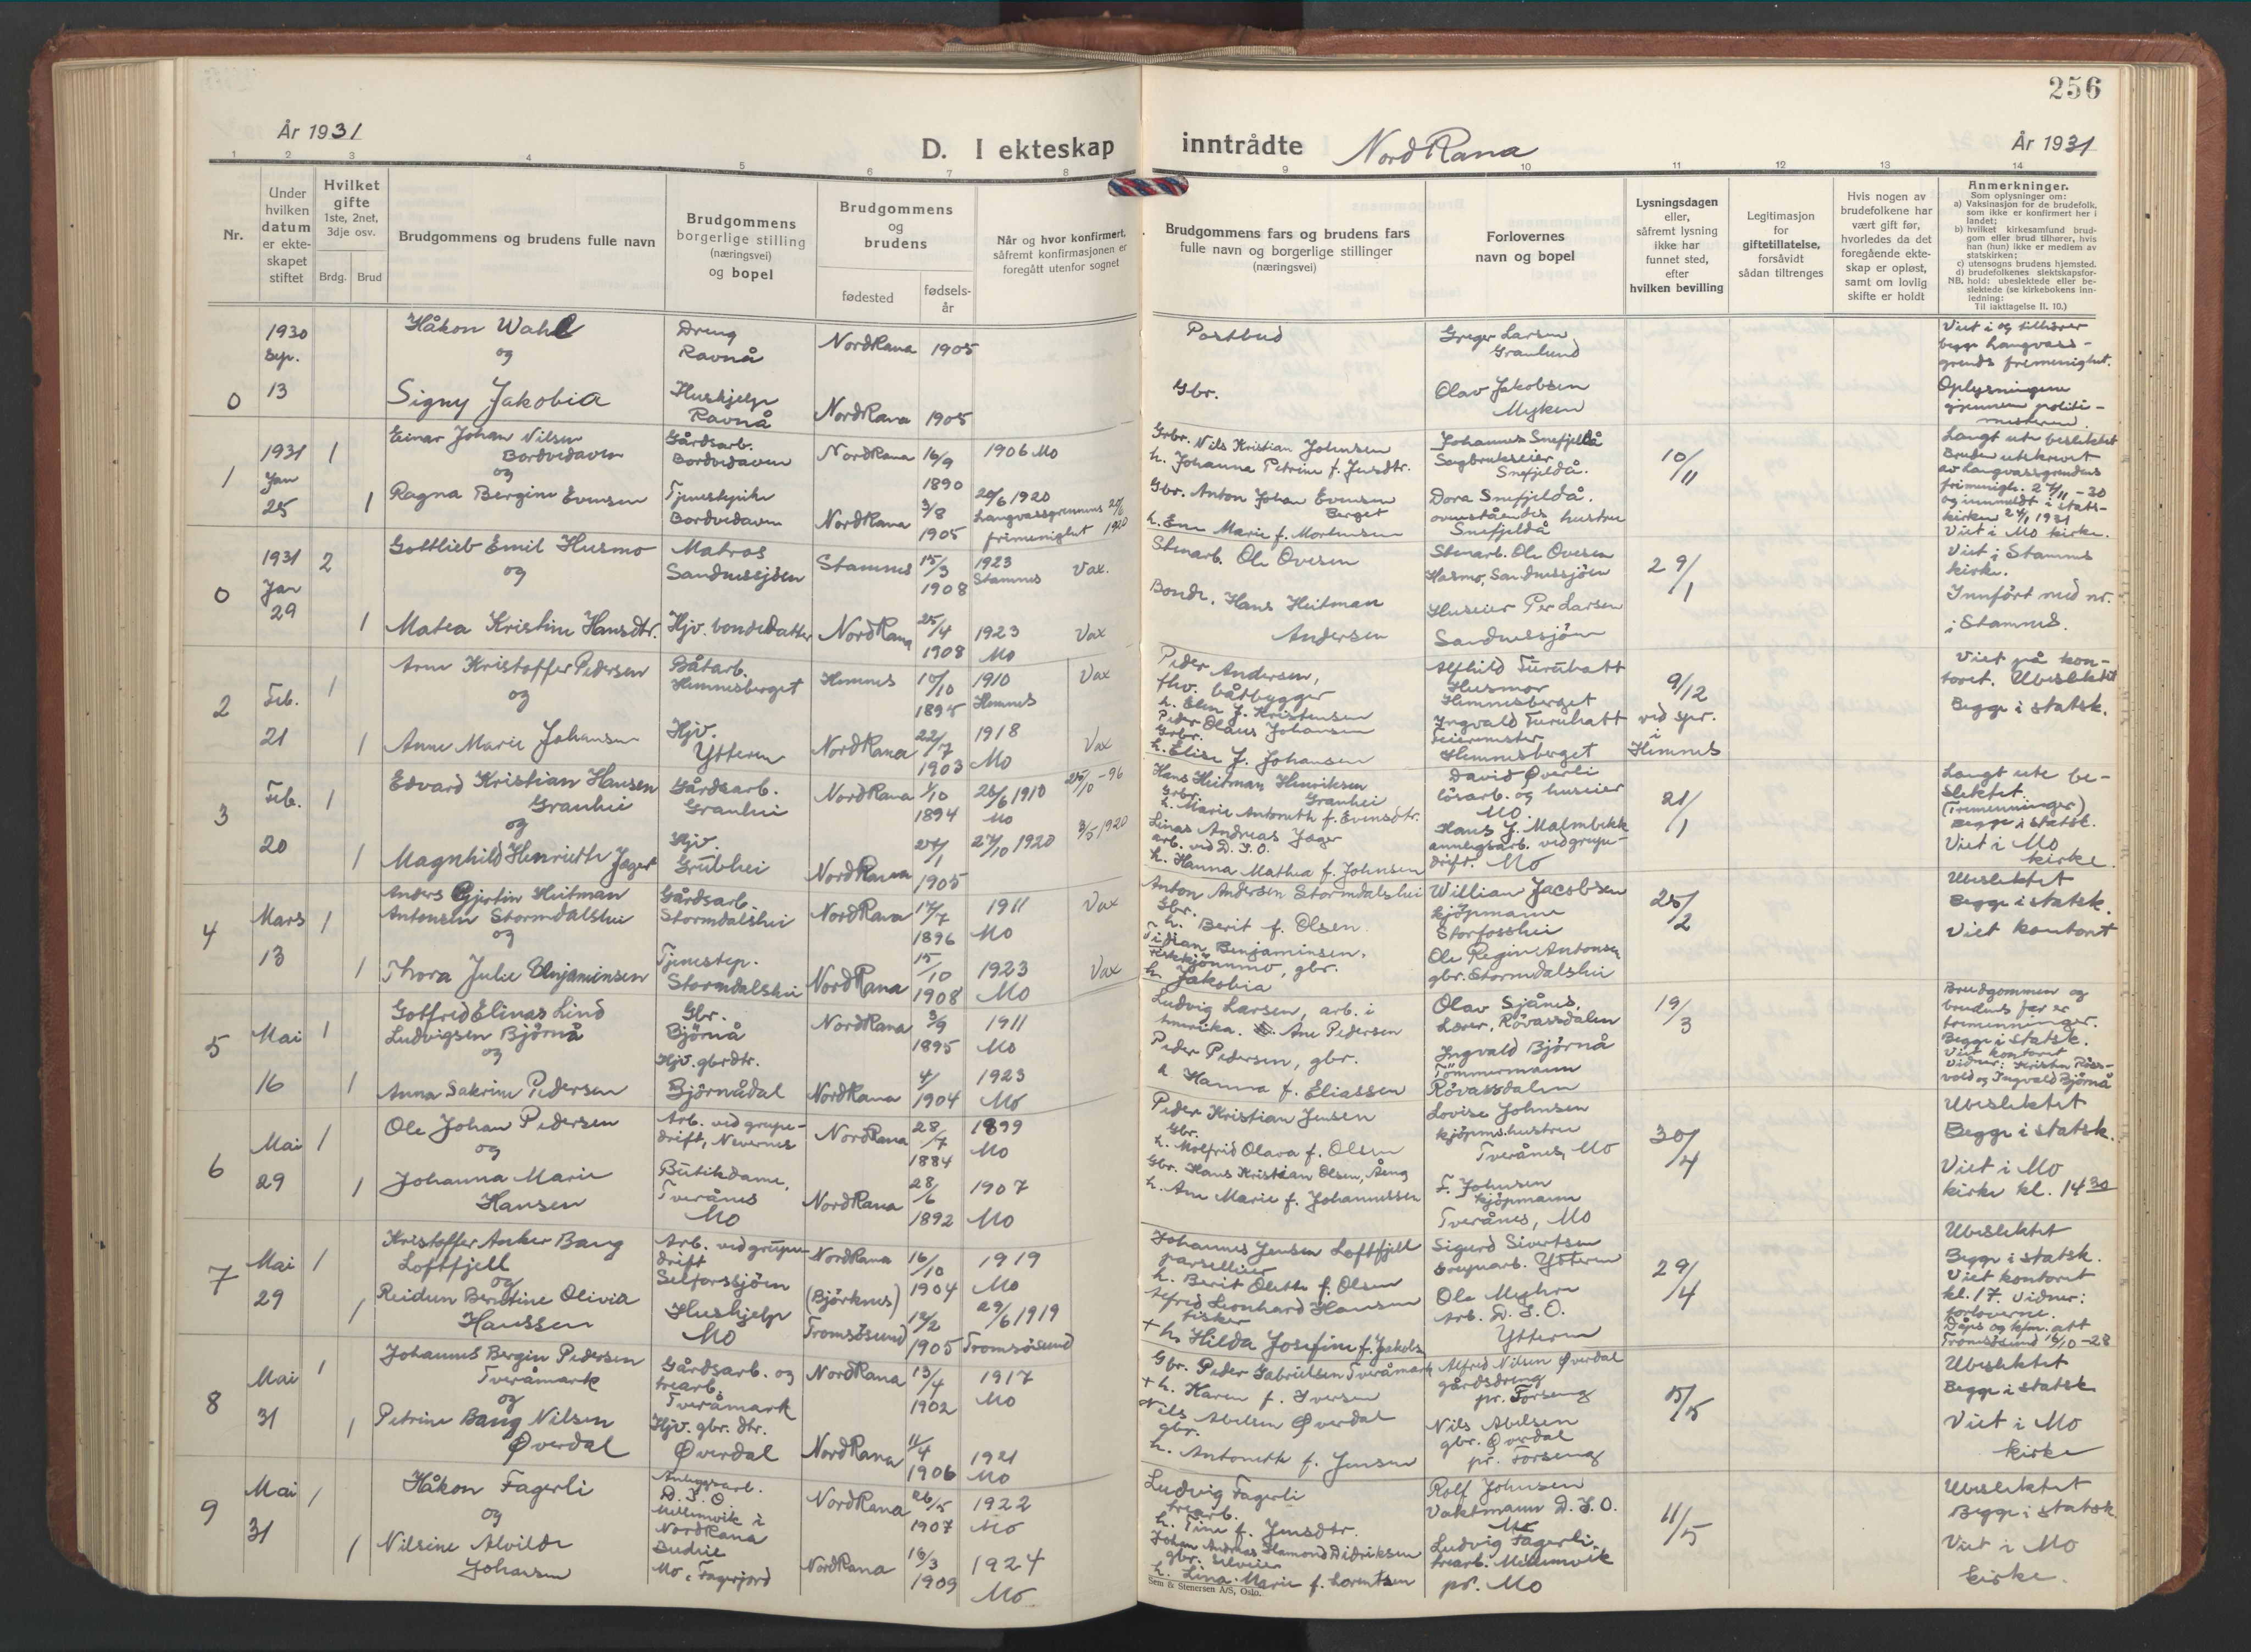 256
År 1931
D. I ekteskap
inntrådte
Nord Rana
År 1931
1 2 3 4 5 6 7 8 9 10 11 12 13 14
Nr.
Under
hvilken
datum
er ekte-
skapet
stiftet
Hvilket
gifte
1ste, 2net,
3dje osv.
Brdg. Brud
Brudgommens og brudens fulle navn
Brudgommens
borgerlige stilling
(næringsvei)
og bopel
Brudgommens
og
brudens
fødested
fødsels-
år
Når og hvor konfirmert,
såfremt konfirmasjonen er
foregått utenfor sognet
Brudgommens fars og brudens fars
fulle navn og borgerlige stillinger
(næringsvei)
Forlovernes
navn og bopel
Lysningsdagen
eller,
såfremt lysning
ikke har
funnet sted,
efter
hvilken bevilling
Legitimasjon
for
giftetillatelse,
forsåvidt
sådan tiltrenges
Hvis nogen av
brudefolkene har
vært gift før,
hvorledes da det
foregående ekte-
skap er opløst,
samt om lovlig
skifte er holdt
Anmerkninger.
Som oplysninger om:
a) Vaksinasjon for de brudefolk,
som ikke er konfirmert her i
landet;
b) hvilket kirkesamfund brud-
gom eller brud tilhører, hvis
han (hun) ikke er medlem av
statskirken;
c) utensogns brudens hjemsted.
d) brudefolkenes slektskapsfor-
hold: ubeslektede eller be-
slektede (se kirkebokens inn-
ledning:
NB. Til iakttagelse II. 10.)
0
1930
Sep.
13
Håkon Wahl
og
Signy Jakobia
Dreng
Ravnå
Hushjelp
Ravnå
Nord Rana 1905
Nord Rana 1905
Postbud
Gbr.
Greger Larsen
Granlund
Olav Jakobsen
Myken
Viet i og tilhører
begge Langvass-
grends frimenighet.
Oplysningene
gjennem politi-
mesteren.
1
1931
Jan
25
1
1
Einar Johan Nilsen
Bordvedaven
og
Ragna Bergine Evensen
Gårdsarb.
Bordvedaven
Tjenestepike
Bordvedaven
Nord Rana 16/9 1890
Nord Rana 3/8 1905
1906 Mo
20/6 1920
Langvassgrennens
frimenighet 20/6 1920
Gbr. Nils Kristian Johnsen
h. Johanna Petrine f. Jensdtr.
Gbr. Anton Johan Evensen
Berget
h. Ene Marie f. Mortensen
Johannes Snefjeldå
Sagbrukseier
Snefjeldå.
Dora Snefjeldå.
ovenståendes hustru
Snefjeldå
10/11
Langt ute beslektet
Bruden utskrevet
av Langvassgrendens
frimenigh. 27/11 -30
og innmeldt i stats-
kirken 24/1 1931
Viet i Mo kirke.
0
1931
Jan
29
2
1
Gottlieb Emil Husmo
og
Matea Kristine Hansdtr.
Matros
Sandnessjöen
Hjv. bondedatter
Stamnes 15/3 1908
Nord Rana 25/4 1908
1923
Stamnes Vax.
1923
Mo Vax
Stenarb. Ole Ovesen
Bonde. Hans Heitman
Andersen
Stenarb. Ole Ovesen
Husmo, Sandnessjöen
Huseier Per Larsen
Sandnessjöen
29/1
Viet i Stamnes
kirke.
Innfört med nr.
i Stamnes.
2
Feb.
21
1
1
Arne Kristoffer Pedersen
og
Anne Marie Johansen
Båtarb.
Hemnesberget
Hjv.
Ytteren
Hemnes 10/10 1895
Nord Rana 22/7 1903
1910
Hemnes Vax
1918
Mo Vax
Peder Andersen,
fhv. båtbygger
h. Elen f. Kristensen
Peder Olaus Johansen
Gbr.
h. Elise f. Johansen
Alfhild Furuhatt
Husmor
Hemnesberget
Ingvald Furuhatt
Feiermester
Hemnesberget
9/12
ved spr.
i
Hemnes
Viet på kon-
toret. Ubeslektet
Begge i statsk.
3
Feb.
20
1
1
Edvard Kristian Hansen
Granhei
og
Magnhild Henriette Jager
Gårdsarb.
Granhei
Hjv.
Grubhei
Nord Rana 1/10 1894
Nord Rana 27/1 1905
26/6 1910
Mo 25/10 -96
27/10 1920 3/5 1920
Hans Heitman Henriksen
Gbr. Granhei
h. Marie Antonette f. Evensdtr.
Linas Andreas Jager
arb. ved D. I. O.
h. Hanna Mathea f. Johnsen
David Øverli
lösarb. og huseier
Mo.
Hans J. Malmbekk
anleggsarb. ved grupe-
drift. Mo
21/1
Langt ute be-
slektet
(Tremenninger)
Begge i statsk.
Viet i Mo
kirke.
4
Mars
13
1
1
Anders Gjertin Heitman
Antonsen Stormdalshei
og
Thora Julie Benjaminsen
Gårdsarb.
Stormdalshei
Tjenestep.
Stormdalshei
Nord Rana 17/7 1896
Nord Rana 15/10 1908
1911
Mo Vax
1923
Mo Vax
Anton Andersen Stormdalshei
Gbr.
h. Berit f. Olsen
Tidian Benjaminsen,
gbr.
h. Jakobia
Willian Jacobsen
kjöpmann
Storfosshei
Ole Regin Antonsen
gbr. Stormdalshei
25/2
Ubeslektet
Begge i statsk.
Viet kontoret
5
Mai
16
1
1
Gotfred Elinas Lind
Ludvigsen Björnå
og
Anna Sakrine Pedersen
Gbr.
Björnå
Hjv. gbrdtr.
Björnådal
Nord Rana 3/9 1895
Nord Rana 4/ 1904
1911
Mo
1923
Mo
Ludvig Larsen, arb. i
Amerika. Ane Pedersen
Peder Pedersen, gbr.
h Hanna f. Eliassen
Olav Sjånes,
Lærer, Rövassdalen
Ingvald Björnå
Tömmermann
Rövassdalen
19/3
Brudgommen og
brudens far er
tremenninger.
Begge i statsk.
Viet kontoret
Vidner: Kristen Röss-
vold og Ingvald Björnå
6
Mai
29
1
1
Ole Johan Pedersen
og
Johanna Marie
Hansen
Arb. ved grupe-
drift, Nevernes
Butikdame,
Tverånes
Mo
Nord Rana 28/7 1884
Nord Rana 28/6 1892
1899
Mo
1907
Mo
Peder Kristian Jensen
Gbr.
h. Molfrid Olava f. Olsen
Gbr. Hans Kristian Olsen, Aeng
h. Ane Marie f. Johannessen
Lovise Johnsen
kjöpms.hustru
Tverånes, Mo
F. Johnsen
kjöpmann
Tverånes, Mo
30/4
Ubeslektet
Begge i statsk.
Viet i Mo
kirke kl. 14 30
7
Mai
29
1
1
Kristoffer Anker Bang
Loftfjell
og
Reidun Berntine Olivia
Hanssen
Arb. ved grupe-
drift
Selforssjöen
Hushjelp
Mo
Nord Rana 16/10 1904
(Björknes)
Tromsösund 12/2 1905
1919
Mo
29/6 1919
Tromsösund
Johannes Jensen Loftfjell
parselleier
h. Berit Olette f. Olsen
Alfred Leonhard Hansen
fisker
+ h. Hilda Josefine f. Jakobs
Sigurd Sivertsen
grupearb. Ytteren
Ole Myhre
Arb. D. I. O.
Ytteren
29/4
Ubeslektet
Begge i statsk.
Viet kontoret
kl. 17. Vidner:
forloverne.
Dåps og kfm. att
Tromsösund 16/10 -28
8
Mai
31
1
1
Johannes Bergin Pedersen
Tveråmark
og
Petrine Bang Nilsen
Øverdal
Gårdsarb. og
trearb.
Tveråmark
Hjv. gbr. dtr.
Øverdal
Nord Rana 13/4 1902
Nord Rana 11/4 1906
1917
Mo
1921
Mo
Gbr. Peder Gabrielsen Tveråmark
+ h. Karen f. Iversen
Nils Abelsen Øverdal
gbr.
h. Antonette f. Jensen
Alfred Nilsen Øverdal
gårdsdreng
pr. Forseng
Nils Abelsen
gbr. Øverdal
pr. Forseng
15/5
Ubeslektet
Begge i statsk
Viet i Mo
kirke
9
Mai
31
1
1
Håkon Fagerli
og
Nilsine Alvilde
Johansen
Anleggsarb.
D. I. O.
Mellemvik i
Nord Rana
Budeie
Mo, Fagerjord
Nord Rana 26/5 1907
Nord Rana 16/3 1909
1922
Mo
1924
Mo
Ludvig Fagerli
trearb.
h. Tine f. Jensdtr.
Johan Andreas Hamond Didriksen
gbr. Selveier
h. Lina Marie f. Lorentsen
Rolf Johnsen
Vaktmann D. I. O.
Mo
Ludvig Fagerli,
trearb. Mellemvik
pr. Mo
11/5
Ubeslektet
Begge i statsk.
Viet i Mo
kirke.
Sem & Stenersen A/S, Oslo.